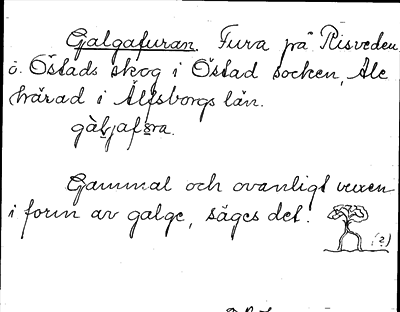 Galgafuran. Fura på Risveden
o. Östads skog i Östad socken, Ale
härad i Älfsborgs län.
gàljafơra.
Gammal och ovanligt vuxen
i form av galge, säges det.
(?)